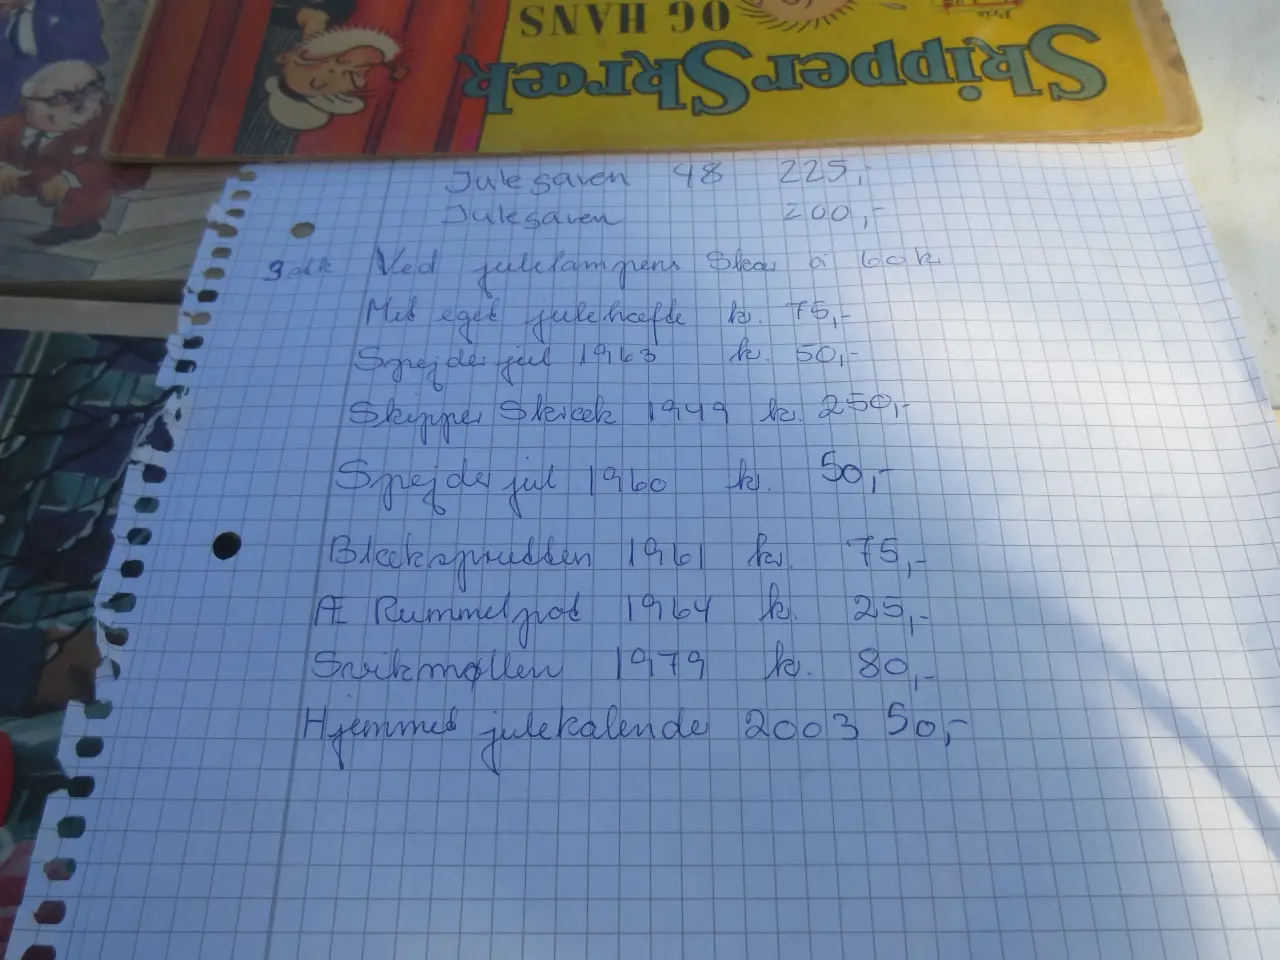 Skipper Skræk
OG HANS
Pris
Julegaven 48 225,-
Julegaven 200,-
9 stk Ved julelampens Skær á 60 k
Mit eget julehæfte kr. 75,-
Spejder jul 1963 kr. 50,-
Skipper Skræk 1949 kr. 250,-
Spejder jul 1960 kr. 50,-
Blæksprutten 1961 kr. 75,-
Æ Rummelpot 1964 kr. 25,-
Svikmøllen 1979 kr. 80,-
Hjemmet julekalende 2003 50,-